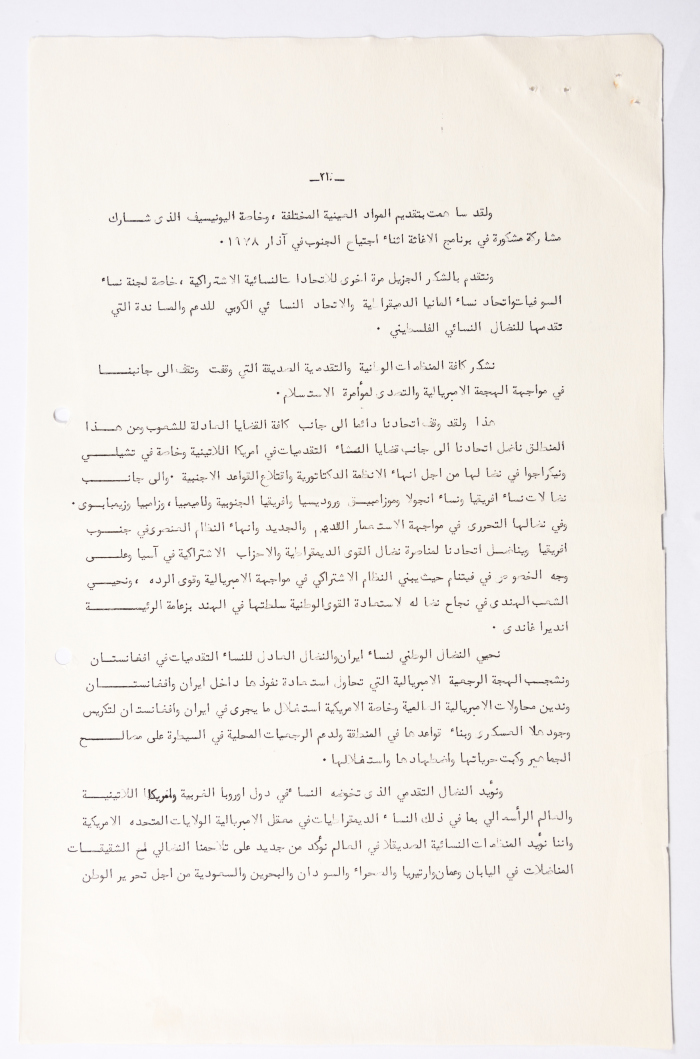 ـ ٢١ ـ
ولقد ساهمت بتقديم المواد العينية المختلفة ، وخاصة اليونيسيف الذى شـــارك
مشاركة مشكورة في برنامج الاغاثة اثناء اجتياح الجنوب في آذار ١٩٧٨ .
ونتقدم بالشكر الجزيل مرة اخرى للاتحادات النسائية الاشتراكية ، خاصة لجنة نساء
السوفيات واتحاد نساء المانيا الديمقراطية والاتحاد النسائي الكوبي للدعم والمساندة التي
تقدمها للنضال النسائي الفلسطيني .
نشكر كافة المنظمات الوطنية والتقدمية الصديقة التي وقفت وتقف الى جانبنـــــا
في مواجهة الهجمة الامبريالية والتصدى لمؤامرة الاستسلام .
هذا ولقد وقف اتحادنا دائما الى جانب كافة القضايا العادلة للشعوب ومن هـــذا
المنطلق ناضل اتحادنا الى جانب قضايا النساء التقدميات في امريكا اللاتينية وخاصة في تشيلـــي
ونيكراجوا في نضالها من اجل انهاء الانظمة الدكتاتورية واقتلاع القواعد الاجنبية . والى جانـــب
نضالات نساء افريقيا ونساء انجولا وموزامبيق وروديسيا وافريقيا الجنوبية ولاميبيا ، وزامبيا وزيمبابوى .
وفي نضالها التحررى في مواجهة الاستعمار القديم والجديد وانهاء النظام العنصرى في جنـــوب
افريقيا ويناضل اتحادنا لمناصرة نضال القوى الديمقراطية والاحزاب الاشتراكية في آسيا وعلـــى
وجه الخصوص في فيتنام حيث يبني النظام الاشتراكي في مواجهة الامبريالية وقوى الرده ، ونحيـــي
الشعب الهندى في نجاح نضاله لاستعادة القوى الوطنية سلطتها في الهند بزعامة الرئيـــــة
انديرا غاندى .
نحيي النضال الوطني لنساء ايران والنضال العادل للنساء التقدميات في افغانستــان
ونشجب الهجة الرجعية الامبريالية التي تحاول استعادة نفوذها داخل ايران وافغانستـــــان
وندين محاولات الامبريالية العالمية وخاصة الامريكية استغلال ما يجرى في ايران وافغانستان لتكريس
وجودها العسكرى وبناء قواعدها في المنطقة ولدعم الرجعيات المحلية في السيطرة على مصالـــح
الجماهير وكبت حرياتها واضطهادها واستغلالها .
ونؤيد النضال التقدمي الذى تخوضه النساء في دول اوروبا الغربية وامريكا اللاتينيـــة
والعالم الرأسمالي بما في ذلك النساء الديمقراطيات في معقل الامبريالية الولايات المتحده الامريكية
واننا نؤيد المنظمات النسائية الصديقة في العالم نؤكد من جديد على تلاحمنا النضالي مع الشقيقـــات
المناضلات في اليابان وعمان وارتيريا والصحراء والسودان والبحرين والسعودية من اجل تحرير الوطن